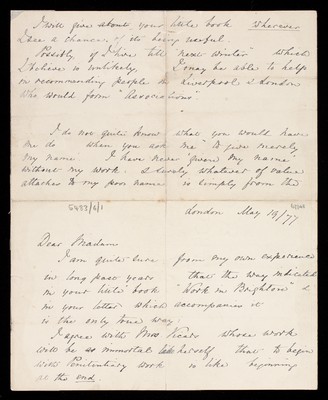 I will give about your little book wherever
I see a chance of its being useful.
Possibly if I live till "next winter" which
I believe is unlikely, I may be able to help
in recommending people in Liverpool & London
who would form "Associations".
I do not quite know what you would have
me do when you ask me "to give merely
my name". I have never "given my name"
without my work. & surely whatever of value
attaches to my poor name is simply from the
5482/6/1
London May 19/77
Dear Madam
I am quite sure from my own experience
in long past years that the way indicated
in your little book "Work in Brighton" &
in your letter which accompanies it
is the only true way:
I agree with Mrs Vicars whose work
will be as immortal as herself that to begin
with Penitentiary work is like beginning
at the end.